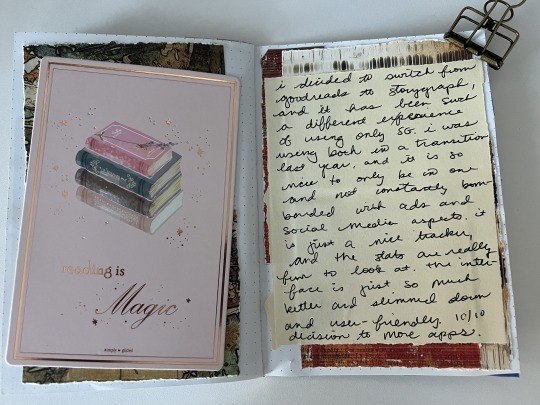 reading is
Magic
i decided to switch from
goodreads to storygraph,
and it has been such
a different experience
of using only SG. i was
using both in a transition
last year, and it is so
nice to only be in one
and not constantly bom-
barded with ads and
social media aspects. it
is just a nice tracker,
and the stats are really
fun to look at. the inter-
face is just so much
better and slimmed down
and user-friendly. 10/10
decision to move apps.